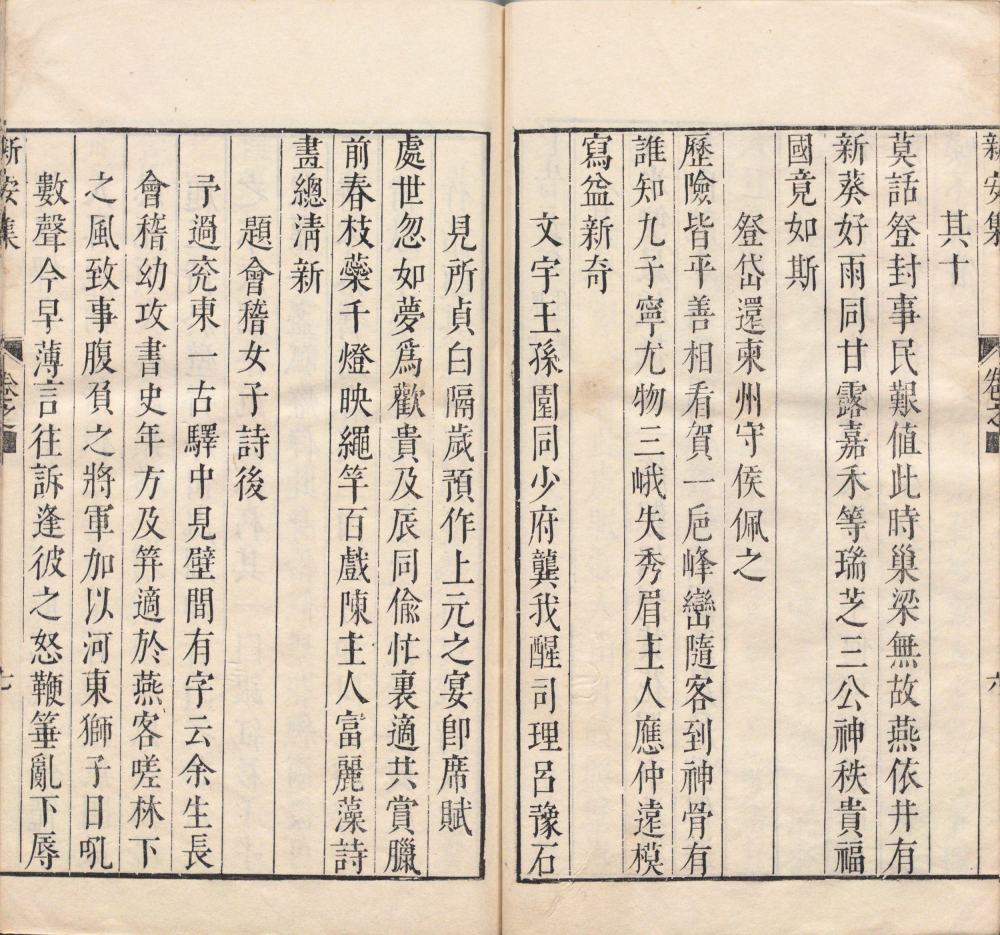 新安集
卷之
六
其十
莫話登封事民艱值此時巢梁無故燕依井有
新葵好雨同甘露嘉禾等瑞芝三公神秩貴福
國竟如斯
登岱還東州守侯佩之
歷險皆平善相看賀一卮峰巒隨客到神骨有
誰知九子寧尤物三峨失秀眉主人應仲遠模
寫益新奇
文宇王孫園同少府龔我醒司理呂豫石
見所貞白隔歲預作上元之宴卽席賦
處世忽如夢爲歡貴及辰同偸忙裏適共賞臘
前春枝蘂千燈映繩竿百戲陳主人富麗藻詩
畫總淸新
題會稽女子詩後
予過兖東一古驛中見壁間有字云余生長
會稽幼攻書史年方及笄適於燕客嗟林下
之風致事腹負之將軍加以河東獅子日吼
數聲今早薄言往訴逢彼之怒鞭箠亂下辱
新安集
卷之
七